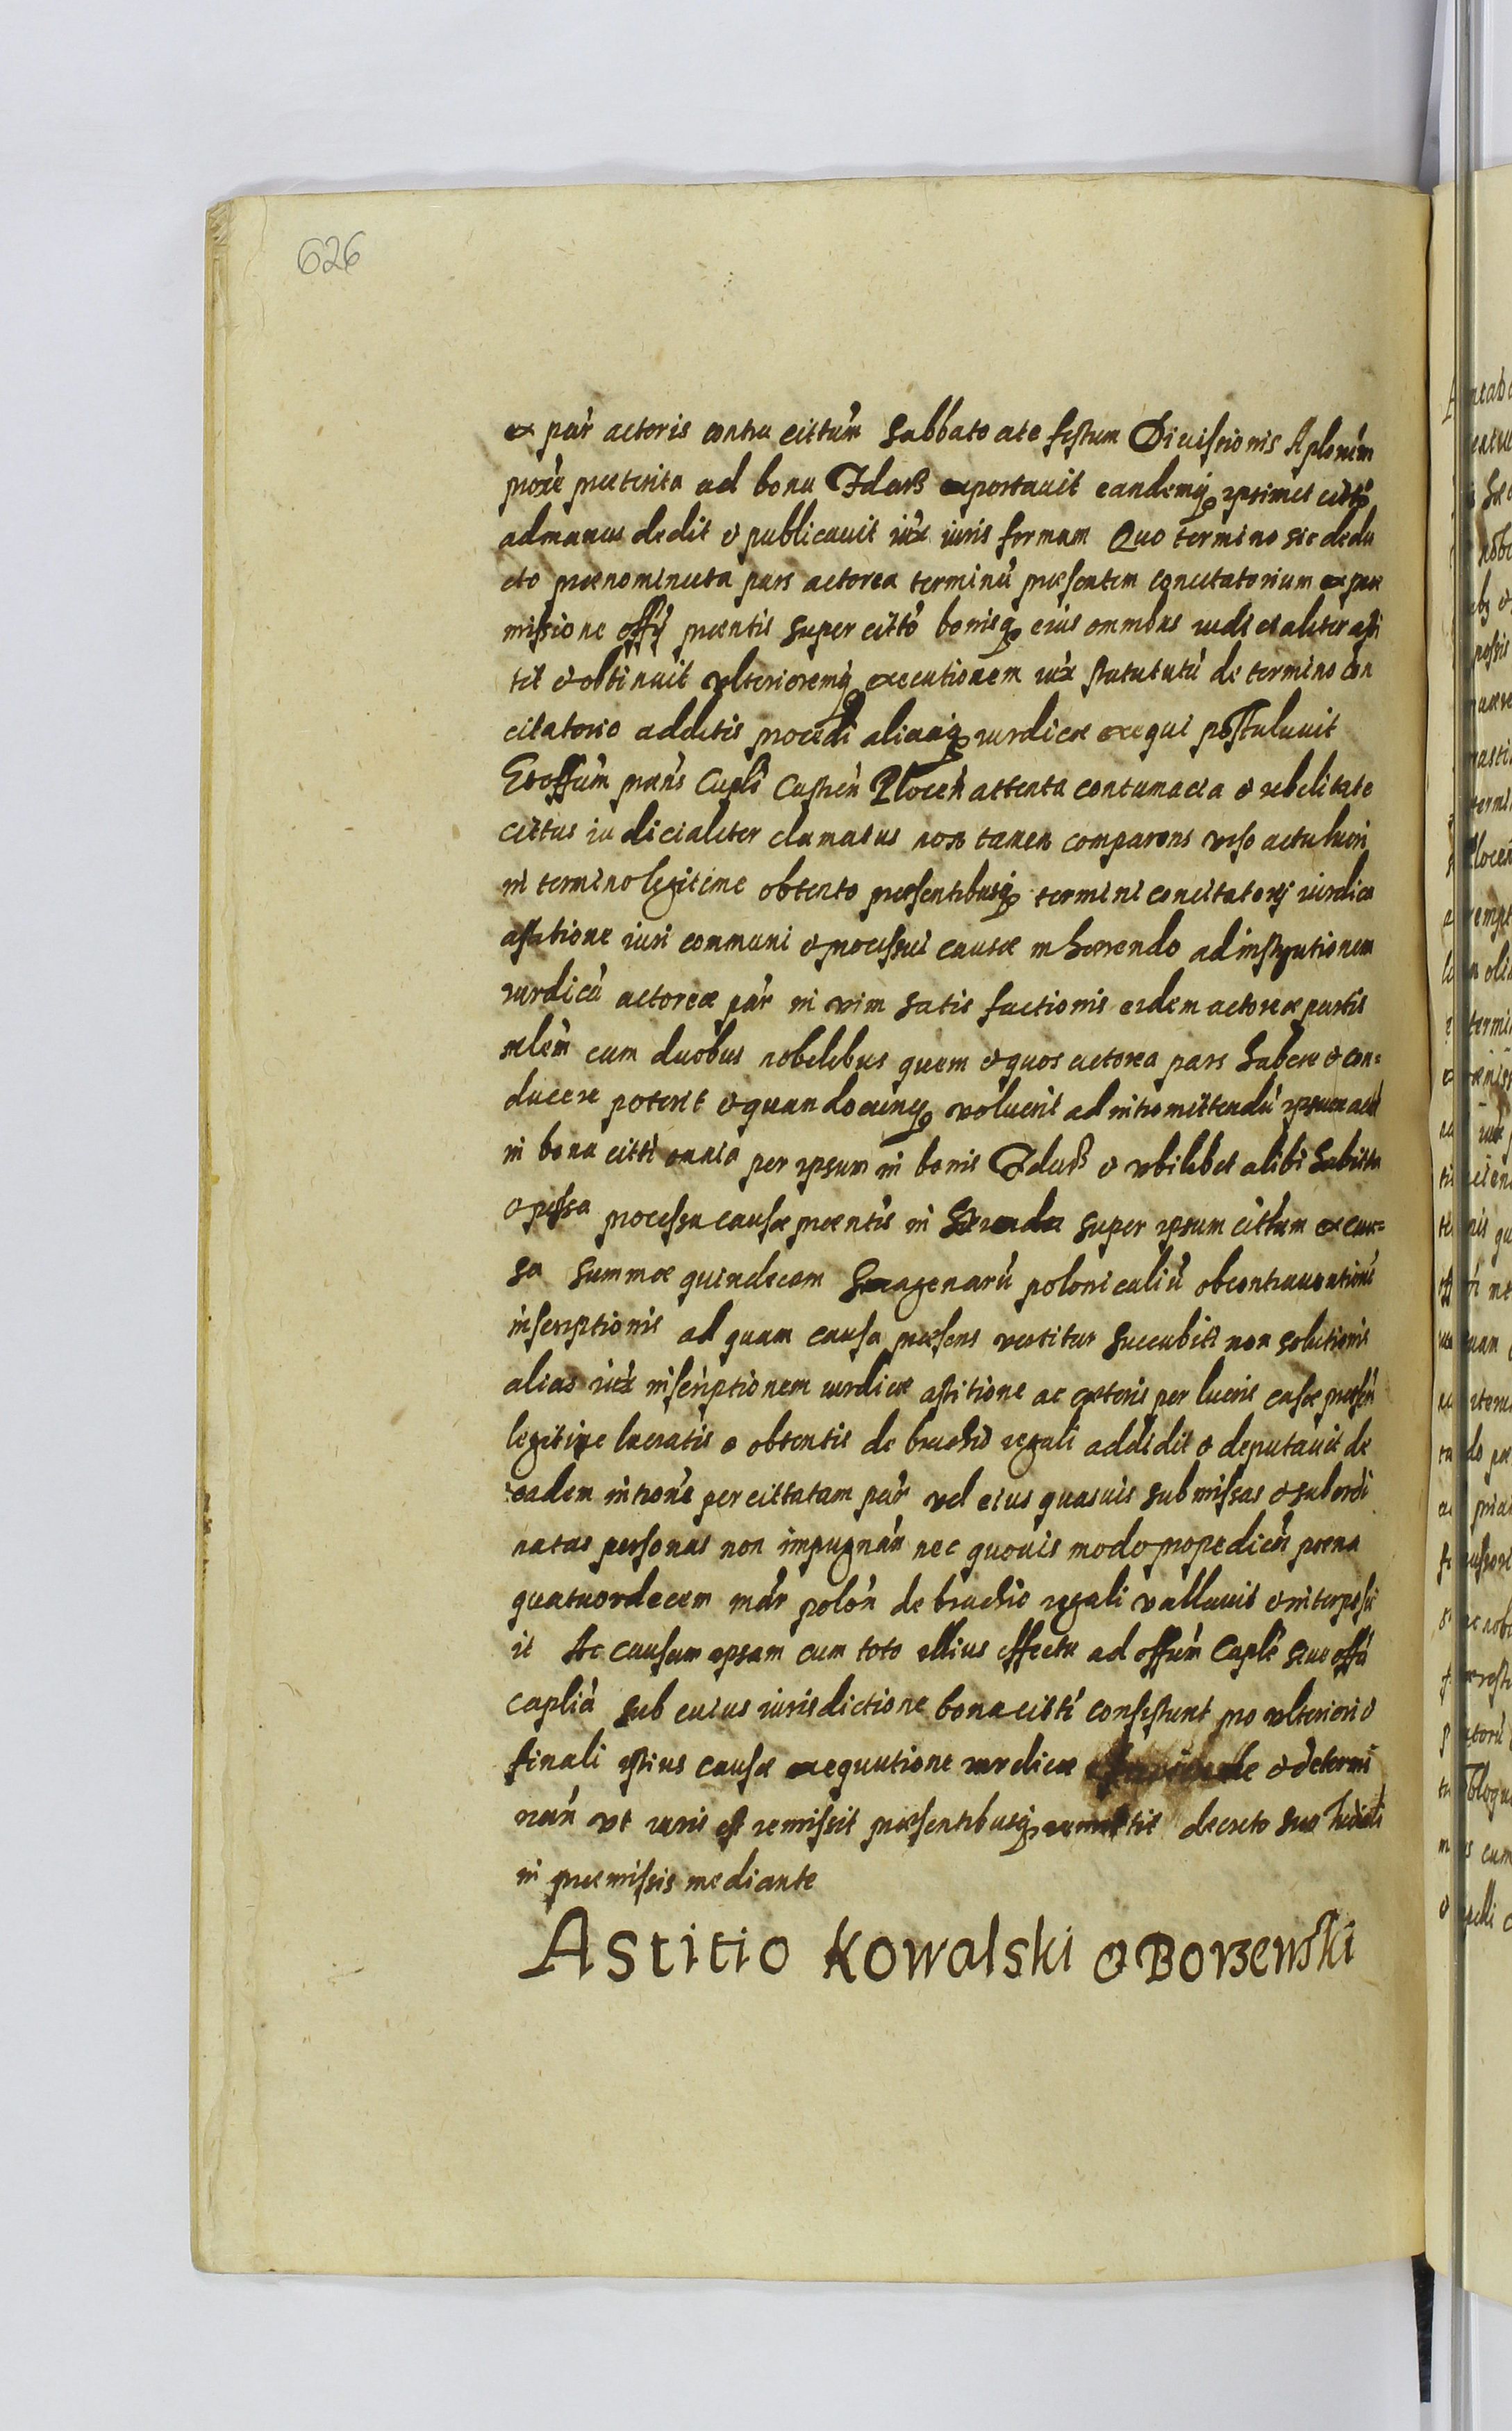 626
ex par actoris contra cittum Sabbato ate festum Diuissionis Aplorum
proxe praeterita ad bona Zdarß exportauit eandemq ipsimet citto
ad manus dedit & publicauit iux iuris formam Quo termino sic dedu
cto praenominata pars actorea terminu praesentem concitatorium ex per
missione offy praentis super citto bonisq eius omnibus iudicialiter asti
tit & obtinuit vlterioremq executionem iux statututu de termino con
citatorio additis procedi aliaq iurdice exequi postulauit
Et offum praens Capli Castren Plocen attenta contumacia & rebelitate
cittus iudicialiter clamatus non tamen comparens viso actu lucri
in termino legitime obtento praesentibusq termini concitatorij iurdica
astatione iuri communi & processui causae inhaerendo ad instigationem
iurdicu actoreae par in vim satis factionis eidem actoreae partis
relem cum duobus nobilibus quem & quos actorea pars habere & con=
ducere poterit & quandocunq voluerit ad intromittendu ipsum
in bona citti omnia per ipsum in bonis Zdarß & vbilibet alibi habita
& possa processu causae praentis in super ipsum cittum ex cau=
sa summae quindecem Sexagenaru polonicaliu ob contrauentione
inscriptionis ad quam causa praesens vertitur succubiti non solutionis
alias iux inscriptionem iurdice astitione ac caeteris per lucris causae praesen
legitime lucratis & obtentis de brachio regali addidit & deputauit de
eadem introne per cittatam par vel eius quasuis submissas & subordi
natas personas non impugnan nec quouis modo propedien poena
quatuordecem mar polon de brachio regali vallauit & interposu
it Ac causam ipsam cum toto illius effectu ad offum Caple siue offa
caplia sub cuius iurisdictione bona citti consistunt pro vlteriori &
finali istius causae exequutione iurdice & determi
nan vt iuris est remissit praesentibusq remittit decreto suo
in praemissis mediante
Astitio Kowalski & Borzewski